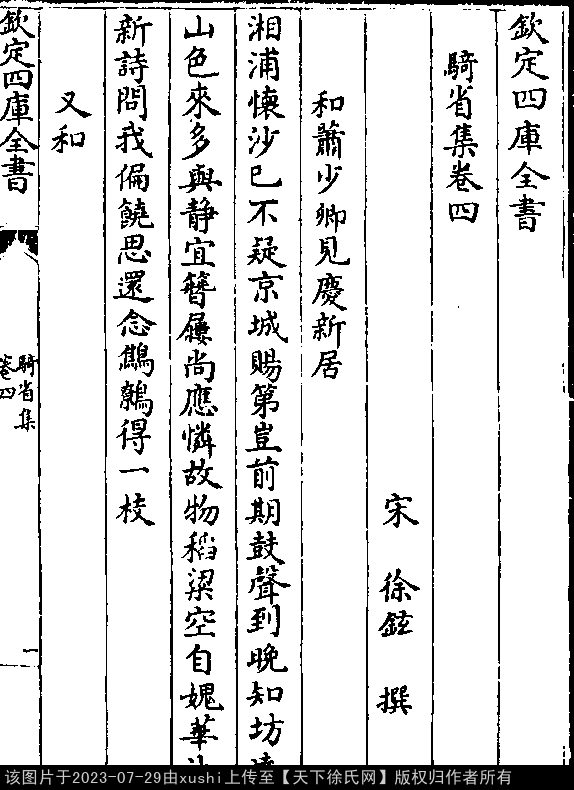 欽定四庫全書
騎省集卷四
宋 徐鉉 撰
和蕭少卿見慶新居
湘浦懷沙已不疑京城賜第豈前期鼓聲到晚知坊
山色來多與静宜簪屨尚應憐故物稻粱空自媿華
新詩問我偏饒思還念鷦鷯得一枝
又和
欽定四庫全書
騎省集
卷四
一
该图片于2023-07-29由xushi上传至【天下徐氏网】版权归作者所有